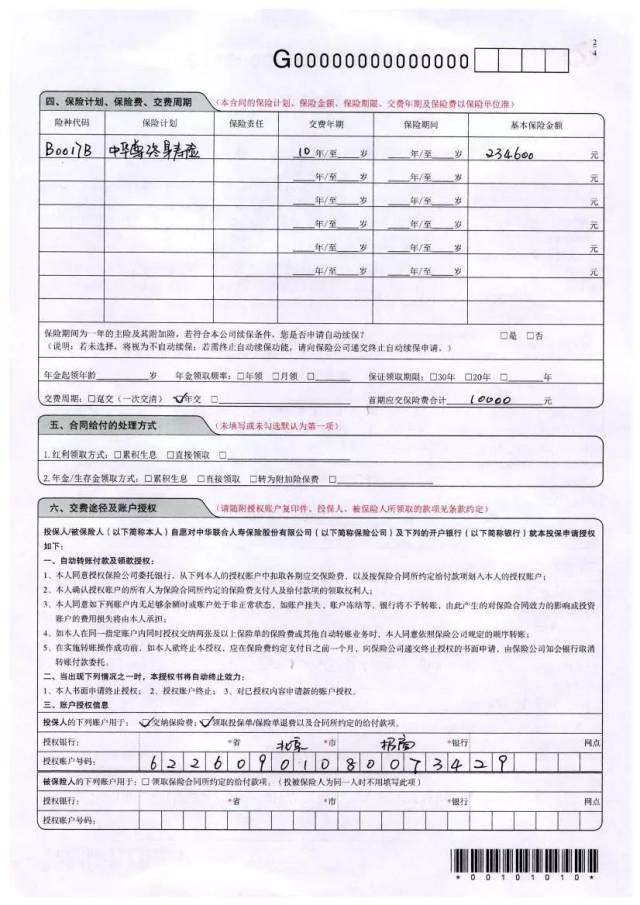 2/4
G00000000000000
四、保险计划、保险费、交费周期 （本合同的保险计划、保险金额、保险期限、交费年期及保险费以保险单位准）
险种代码 保险计划 保险责任 交费年期 保险期间 基本保险金额
B0017B 中华尊终身寿险 10年/至____岁 ____年/至____岁 234600 元
____年/至____岁 ____年/至____岁 元
____年/至____岁 ____年/至____岁 元
____年/至____岁 ____年/至____岁 元
____年/至____岁 ____年/至____岁 元
____年/至____岁 ____年/至____岁 元
保险期间为一年的主险及其附加险，若符合本公司续保条件，您是否申请自动续保？ □是 □否
（说明：若未选择，将视为不自动续保；若需终止自动续保功能，请向保险公司递交终止自动续保申请。）
年金起领年龄________岁 年金领取频率：□年领 □月领 □________ 保证领取期限：□30年 □20年 □____年
交费周期：□趸交（一次交清） ☑年交 □________ 首期应交保险费合计 10000 元
五、合同给付的处理方式 （未填写或未勾选默认为第一项）
1. 红利领取方式：□累积生息 □直接领取 □________
2. 年金/生存金领取方式：□累积生息 □直接领取 □转为附加险保费 □________
六、交费途径及账户授权 （请随附授权账户复印件，投保人、被保险人所领取的款项见条款约定）
投保人/被保险人（以下简称本人）自愿对中华联合人寿保险股份有限公司（以下简称保险公司）及下列的开户银行（以下简称银行）就本投保申请授权
如下：
一、自动转账付款及领款授权：
1、本人同意授权保险公司委托银行，从下列本人的授权账户中扣取各期应交保险费，以及按保险合同所约定给付款项划入本人的授权账户；
2、本人确认授权账户的所有人为保险合同约定的保险费支付人及给付款项的领取权利人；
3、本人同意如下列账户内无足够余额时或账户处于非正常状态，如账户挂失、账户冻结等，银行将不予转账，由此产生的对保险合同效力的影响或投资
账户的费用损失将由本人承担；
4、如本人在同一指定账户内同时授权交纳两张及以上保险单的保险费或其他自动转账业务时，本人同意依照保险公司规定的顺序转账；
5、在实施转账操作成功前，如本人欲终止本授权，应在保险费约定支付日之前一个月，向保险公司递交终止授权的书面申请，由保险公司知会银行取消
转账付款委托。
二、当出现下列情况之一时，本授权书将自动终止效力：
1、本人书面申请终止授权； 2、授权账户终止； 3、对已授权内容申请新的账户授权。
三、账户授权信息
投保人的下列账户用于：☑交纳保险费；☑领取投保单/保险单退费以及合同所约定的给付款项。
授权银行： *省 北京 *市 招商 *银行 网点
授权账户号码： 62260901080073429
被保险人的下列账户用于：□ 领取保险合同所约定的给付款项。（投被保险人为同一人时不用填写此项）
授权银行： *省 *市 *银行 网点
授权账户号码：
*00101010*